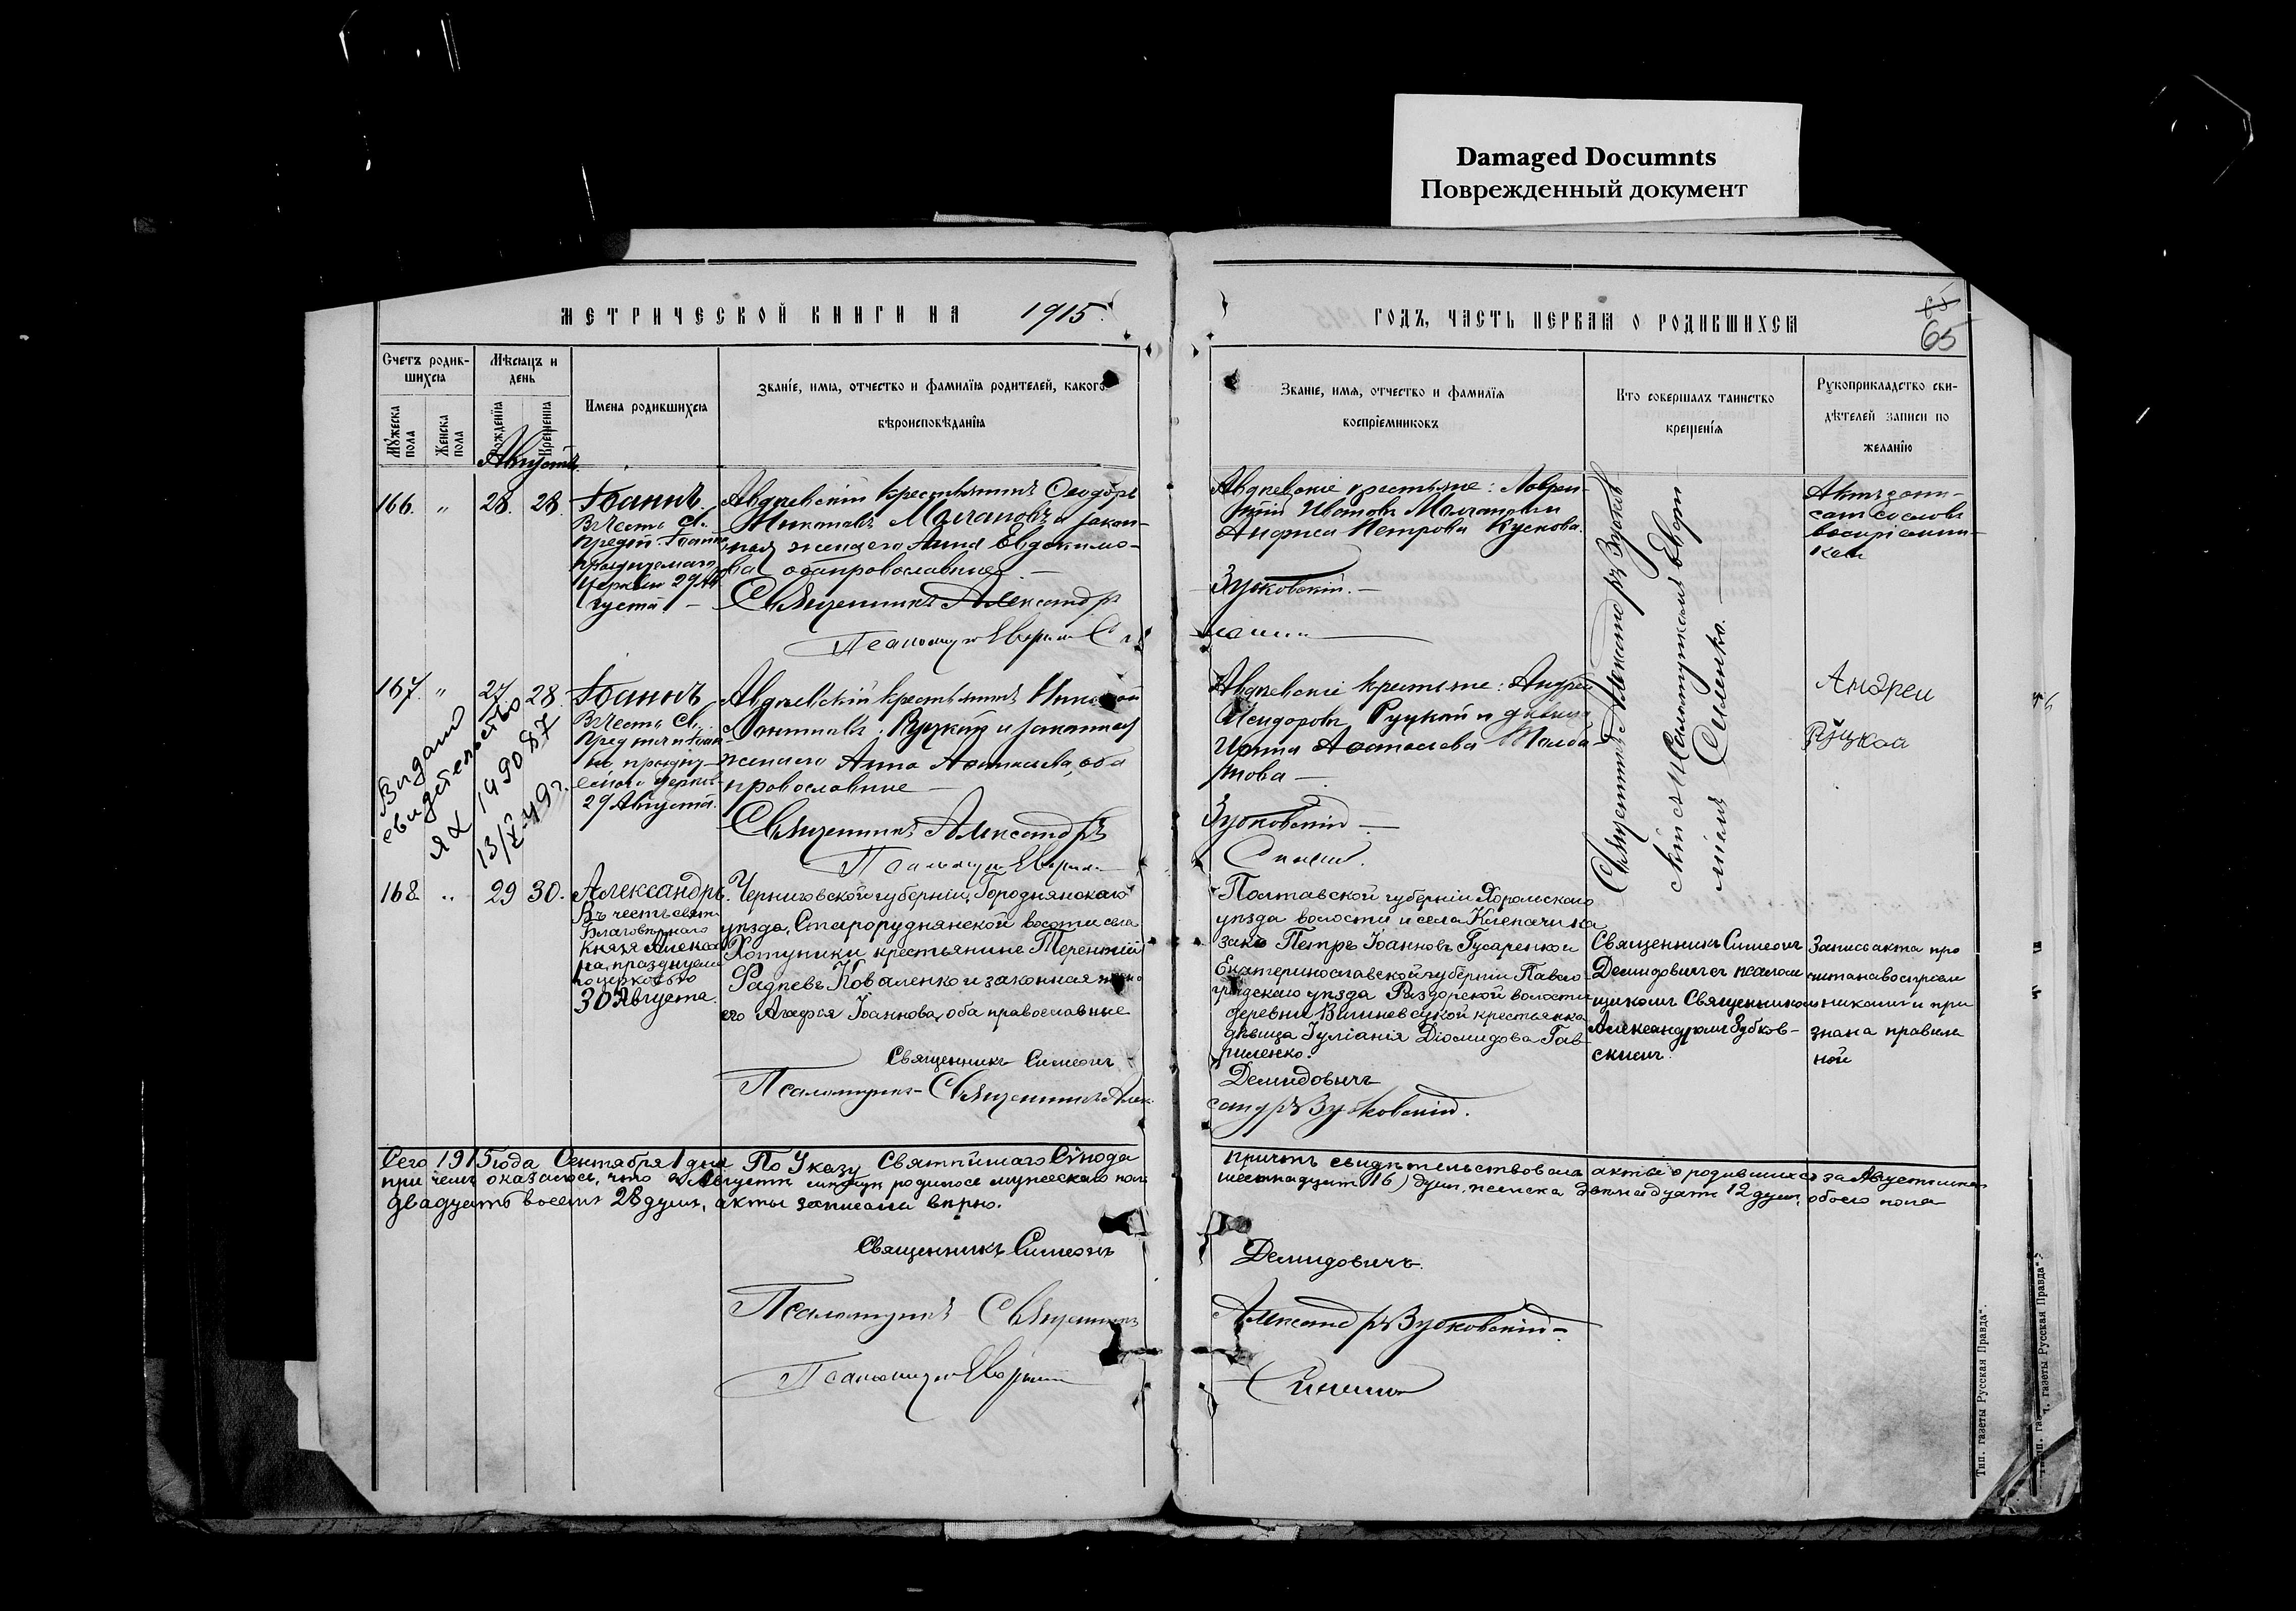 Damaged Documnts
Поврежденный документ
МЕТРИЧЕСКОЙ КНИГИ НА 1915.
ГОДЪ, ЧАСТЬ ПЕРВАЯ О РОДИВШИХСЯ
65
Счетъ родив-
шихся
Мѣсяцъ и
день
Мужеска
пола
Женска
пола
Рожденія
Крещенія
Имена родившихся
Званіе, имя, отчество и фамилія родителей, какого
вѣроисповѣданія
Званіе, имя, отчество и фамилія
воспріемниковъ
Кто совершалъ таинство
крещенія
Рукоприкладство сви-
дѣтелей записи по
желанію
Августъ.
166. " 28. 28. Іоаннъ.
Въ честь Св.
Предт. Іоанна
празднуемаго
Церковью 29 Ав
густа
Авдѣевскій крестьянинъ Ѳеодоръ
Молчановъ и закон-
ная жена его Анна Евдокимо-
ва оба православные
Священникъ Александръ
Авдѣевскіе крестьяне: Лаврен-
тій Ивановъ Молчановъ и
Петрова Кускова.
Зубковскій.
Священникъ Александръ Зубков
скій съ Псаломщикомъ Евфи
міемъ
167. " 27 28. Іоаннъ
Въ честь Св.
29 Августа.
Видано
свидетельство
ЯХ 190087
Авдѣевскій крестьянинъ
Руцкой и законная
жена его Анна оба
православные
Священникъ Александръ
Авдѣевскіе крестьяне: Андрей
Исидоровъ Руцкой и дѣвица
Зубковскій
Андреи
Руцкой
168. " 29 30. Александръ.
Въ честь свят.
Благовѣрнаго
Князя Алекса
ра, празднуема
го церковью
30 Августа.
Черниговской губерніи, Городнянскаго
уѣзда, Старорудянской волости села
Хотуничи крестьянинъ Терентій
Фадѣевъ Коваленко и законная жена
его Агафья Іоаннова, оба православные
Священникъ Симеонъ
Псаломщикъ-Священникъ Алек
Полтавской губерніи Хорольскаго
уѣзда волости и села Клепачи ка
закъ Петръ Іоанновъ Гусаренко и
Екатеринославской губерніи Павло
градскаго уѣзда Раздорской волости
деревни крестьянка
дѣвица Іуліанія Діомидова Гав-
риленко.
Демидовичъ
сандръ Зубковскій.
Священникъ Симеонъ
Демидовичъ съ псалом
щикомъ Священникомъ
Александромъ Зубков-
скимъ.
Запись акта про
читана воспріем
никами и при
знана правиль
ной
Сего 1915 года Сентября 1 дня По Указу Святѣйшаго Сѵнода
причтъ свидѣтельствовалъ акты о родившихся за Августъ
при чемъ оказалось, что въ Августѣ родилось мужескаго пола
шестнадцать 16) душъ, женска двѣнадцать 12 душъ, обоего пола
двадцать восемь 28 душъ, акты записаны вѣрно.
Священникъ Симеонъ
Демидовичъ.
Псаломщикъ Священникъ
Александръ Зубковскій
Тип. газеты Русская Правда".
газеты Русская Правда".